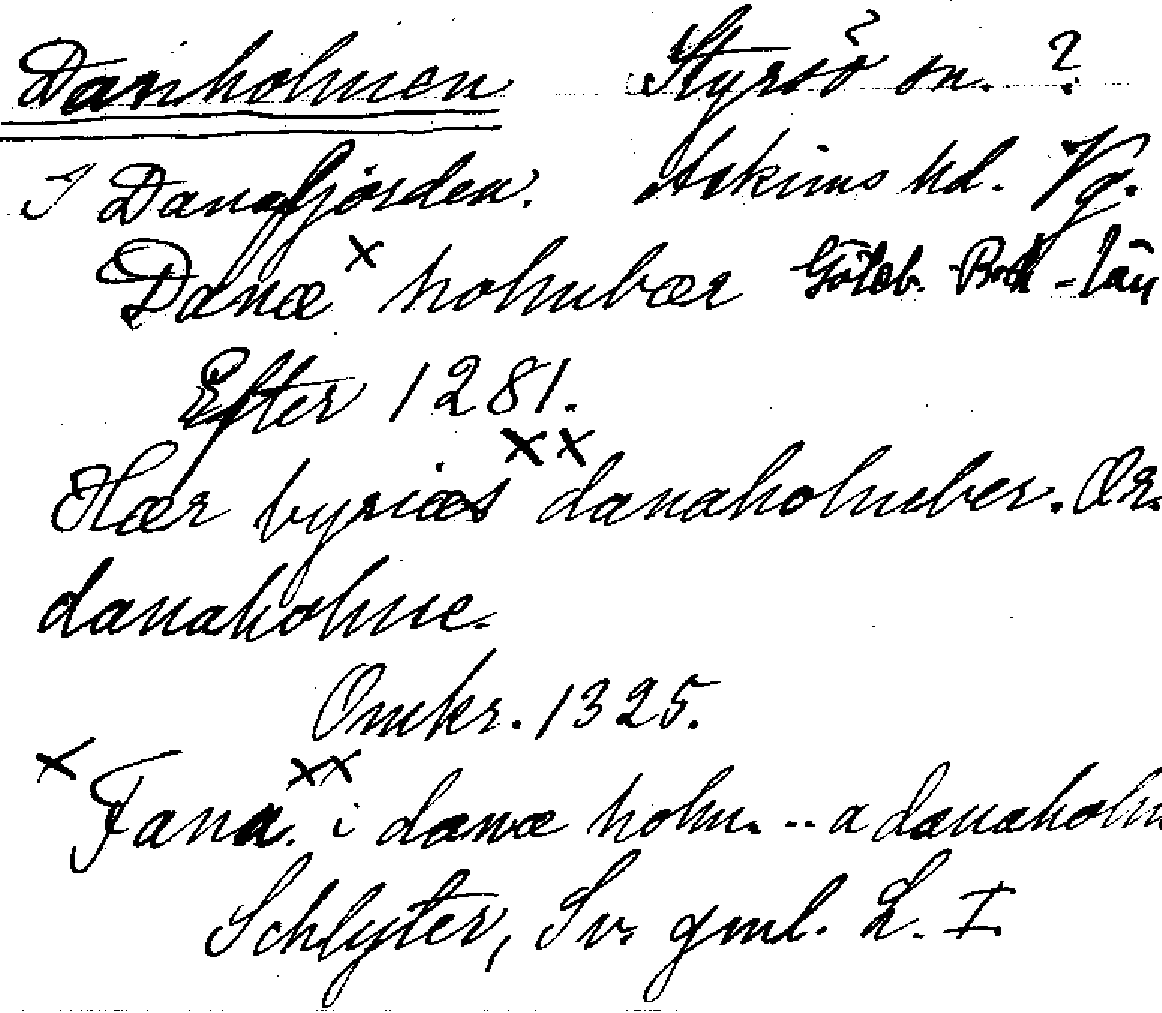 Danholmen Styrsö sn. ?
I Danafjorden. Askims hd. Vg.
Danæ x holmbær Göteb. Boh - län
Efter 1281.
Hær byriæs xx danaholmber. Ær.
danaholme.
Omkr. 1325.
x Fana. xx i danæ holm. .. a danaholm
Schlyter, Sv. gml. L. I.